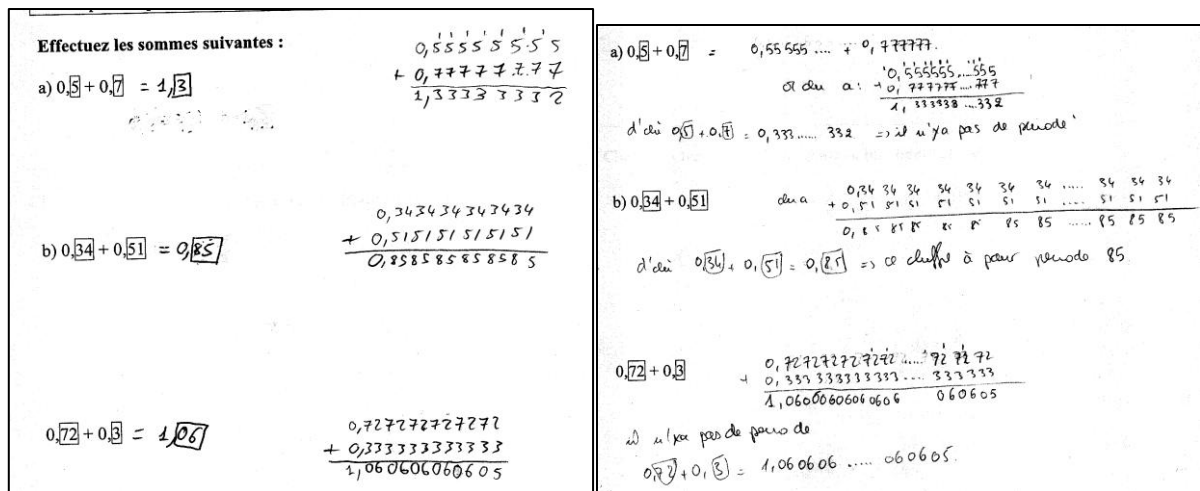 Effectuez les sommes suivantes :
a) 0,5 + 0,7 = 1,3
0,5 5 5 5 5 5.5 5
+ 0,7 7 7 7 7.7.7 7
1,3 3 3 3 3 3 3 2
b) 0,34 + 0,51 = 0,85
0,34 34 34 34 34 34
+ 0,51 51 51 51 51 51
0,85 85 85 85 85 85
0,72 + 0,3 = 1,06
0,727272727272
+ 0,333333333333
1,060606060605
a) 0,5 + 0,7 = 0,55555.... + 0,777777.
or on a : 0,555555....555
+0,777777....777
1,333338....332
d'où 0,5 + 0,7 = 0,333..... 332 => il n'ya pas de periode
b) 0,34 + 0,51
on a 0,34 34 34 34 34 34 34 ..... 34 34 34
+0,51 51 51 51 51 51 51 ..... 51 51 51
0,85 85 85 85 85 85 85 ..... 85 85 85
d'où 0,34 + 0,51 = 0,85 => ce chiffre à pour periode 85
0,72 + 0,3
0,727272727272 ..... 72 72 72
+ 0,333333333333 .... 333333
1,06000606060606 060605
il n'ya pas de periode
0,72 + 0,3 = 1,060606 ..... 060605.